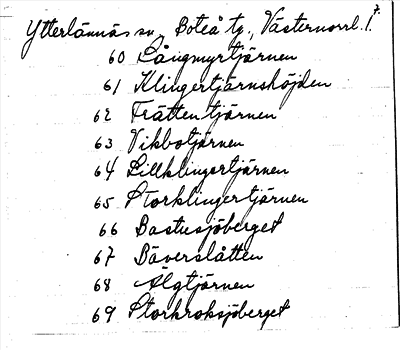 7.
Ytterlännäs sn, Boteå tg., Västernorrl. l.
60 Långmyrtjärnen
61 Klingertjärnshöjden
62 Frättentjärnen
63 Vikbotjärnen
64 Lillklingertjärnen
65 Storklingertjärnen
66 Bastusjöberget
67 Bäverslåtten
68 Älgtjärnen
69 Storkroksjöberget